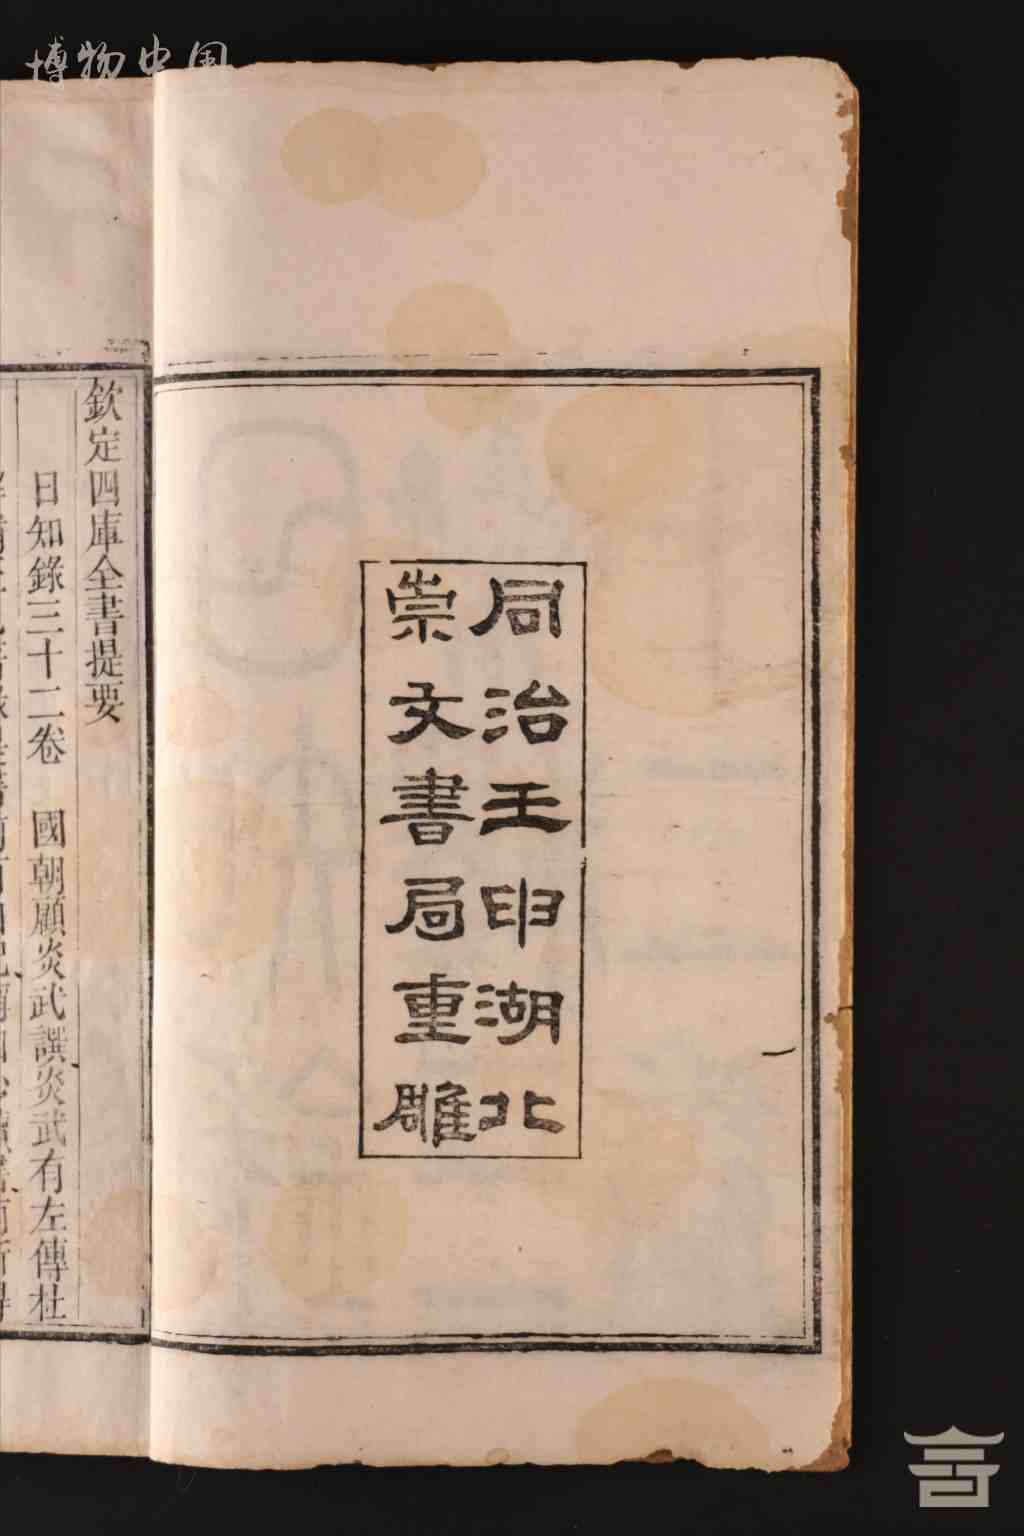 博物中国
同治壬申湖北
崇文書局重雕
欽定四庫全書提要
日知錄三十二卷 國朝顧炎武譔炎武有左傳杜